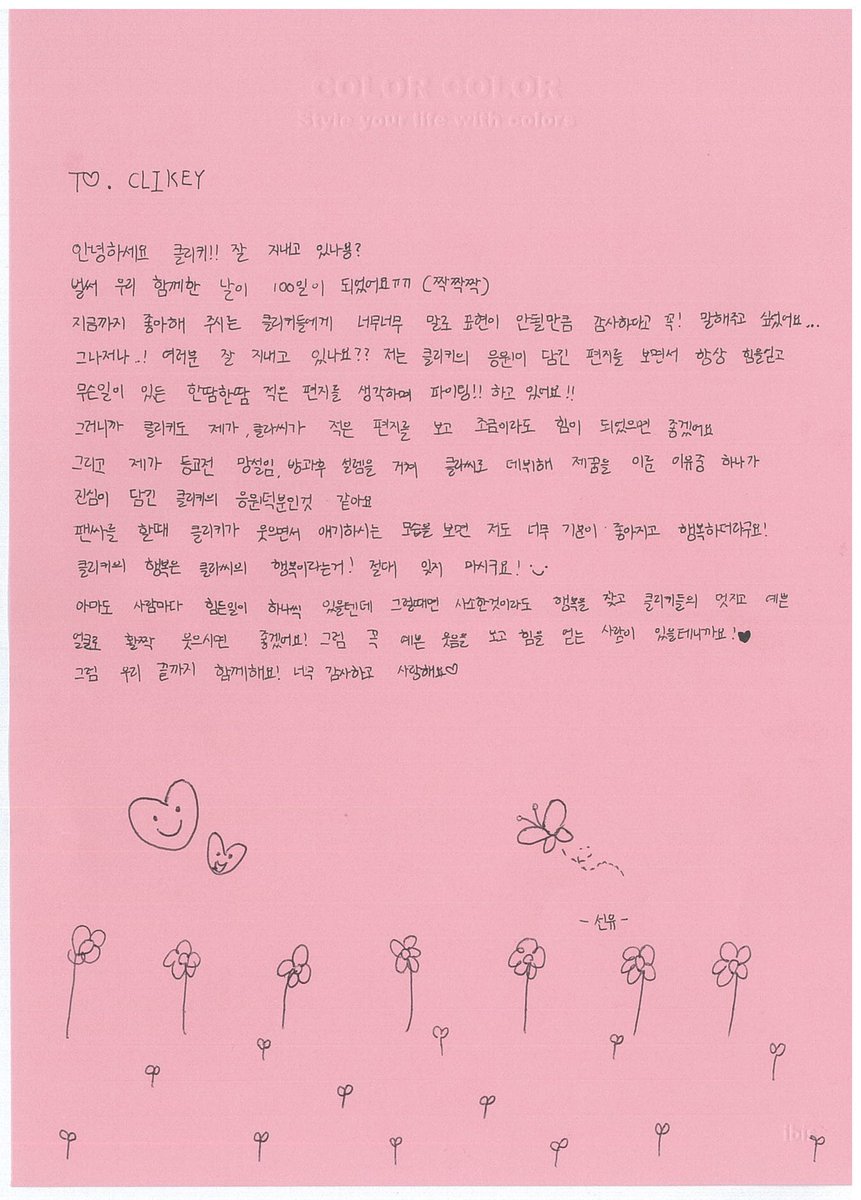 COLOR COLOR
Style your life with colors
T♡. CLIKEY
안녕하세요 클리키!! 잘 지내고 있나용?
벌써 우리 함께한 날이 100일이 되었어요ㅠㅠ (짝짝짝)
지금까지 좋아해 주시는 클리키들에게 너무너무 말로 표현이 안될만큼 감사하다고 꼭! 말해주고 싶었어요...
그나저나..! 여러분 잘 지내고 있나요?? 저는 클리키의 응원이 담긴 편지를 보면서 항상 힘을얻고
무슨일이 있든 한땀한땀 적은 편지를 생각하며 파이팅!! 하고 있어요!!
그러니까 클리키도 제가, 클라씨가 적은 편지를 보고 조금이라도 힘이 되었으면 좋겠어요
그리고 제가 등교전 망설임, 방과후 설렘을 거쳐 클라씨로 데뷔해 제꿈을 이룬 이유중 하나가
진심이 담긴 클리키의 응원덕분인것 같아요
팬싸를 할때 클리키가 웃으면서 얘기하시는 모습을 보면 저도 너무 기분이 좋아지고 행복하더라구요!
클리키의 행복은 클라씨의 행복이라는거! 절대 잊지 마시구요!
아마도 사람마다 힘든일이 하나씩 있을텐데 그럴때면 사소한것이라도 행복을 찾고 클리키들의 멋지고 예쁜
얼굴로 활짝 웃으시면 좋겠어요! 그럼 꼭 예쁜 웃음을 보고 힘을 얻는 사람이 있을테니까요!♥
그럼 우리 끝까지 함께해요! 너무 감사하고 사랑해요♡
-선유-